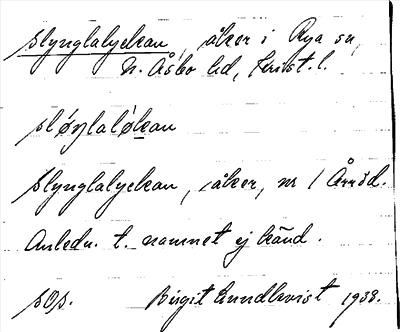 Slynglalyckan, åker i Rya sn,
N. Åsbo hd, Krist. l.
sløŋlaløkan
Slynglalyckan, åker, nr 1 Årröd.
Anledn. t. namnet ej känd.
sOp. Birgit Lundkvist 1938.